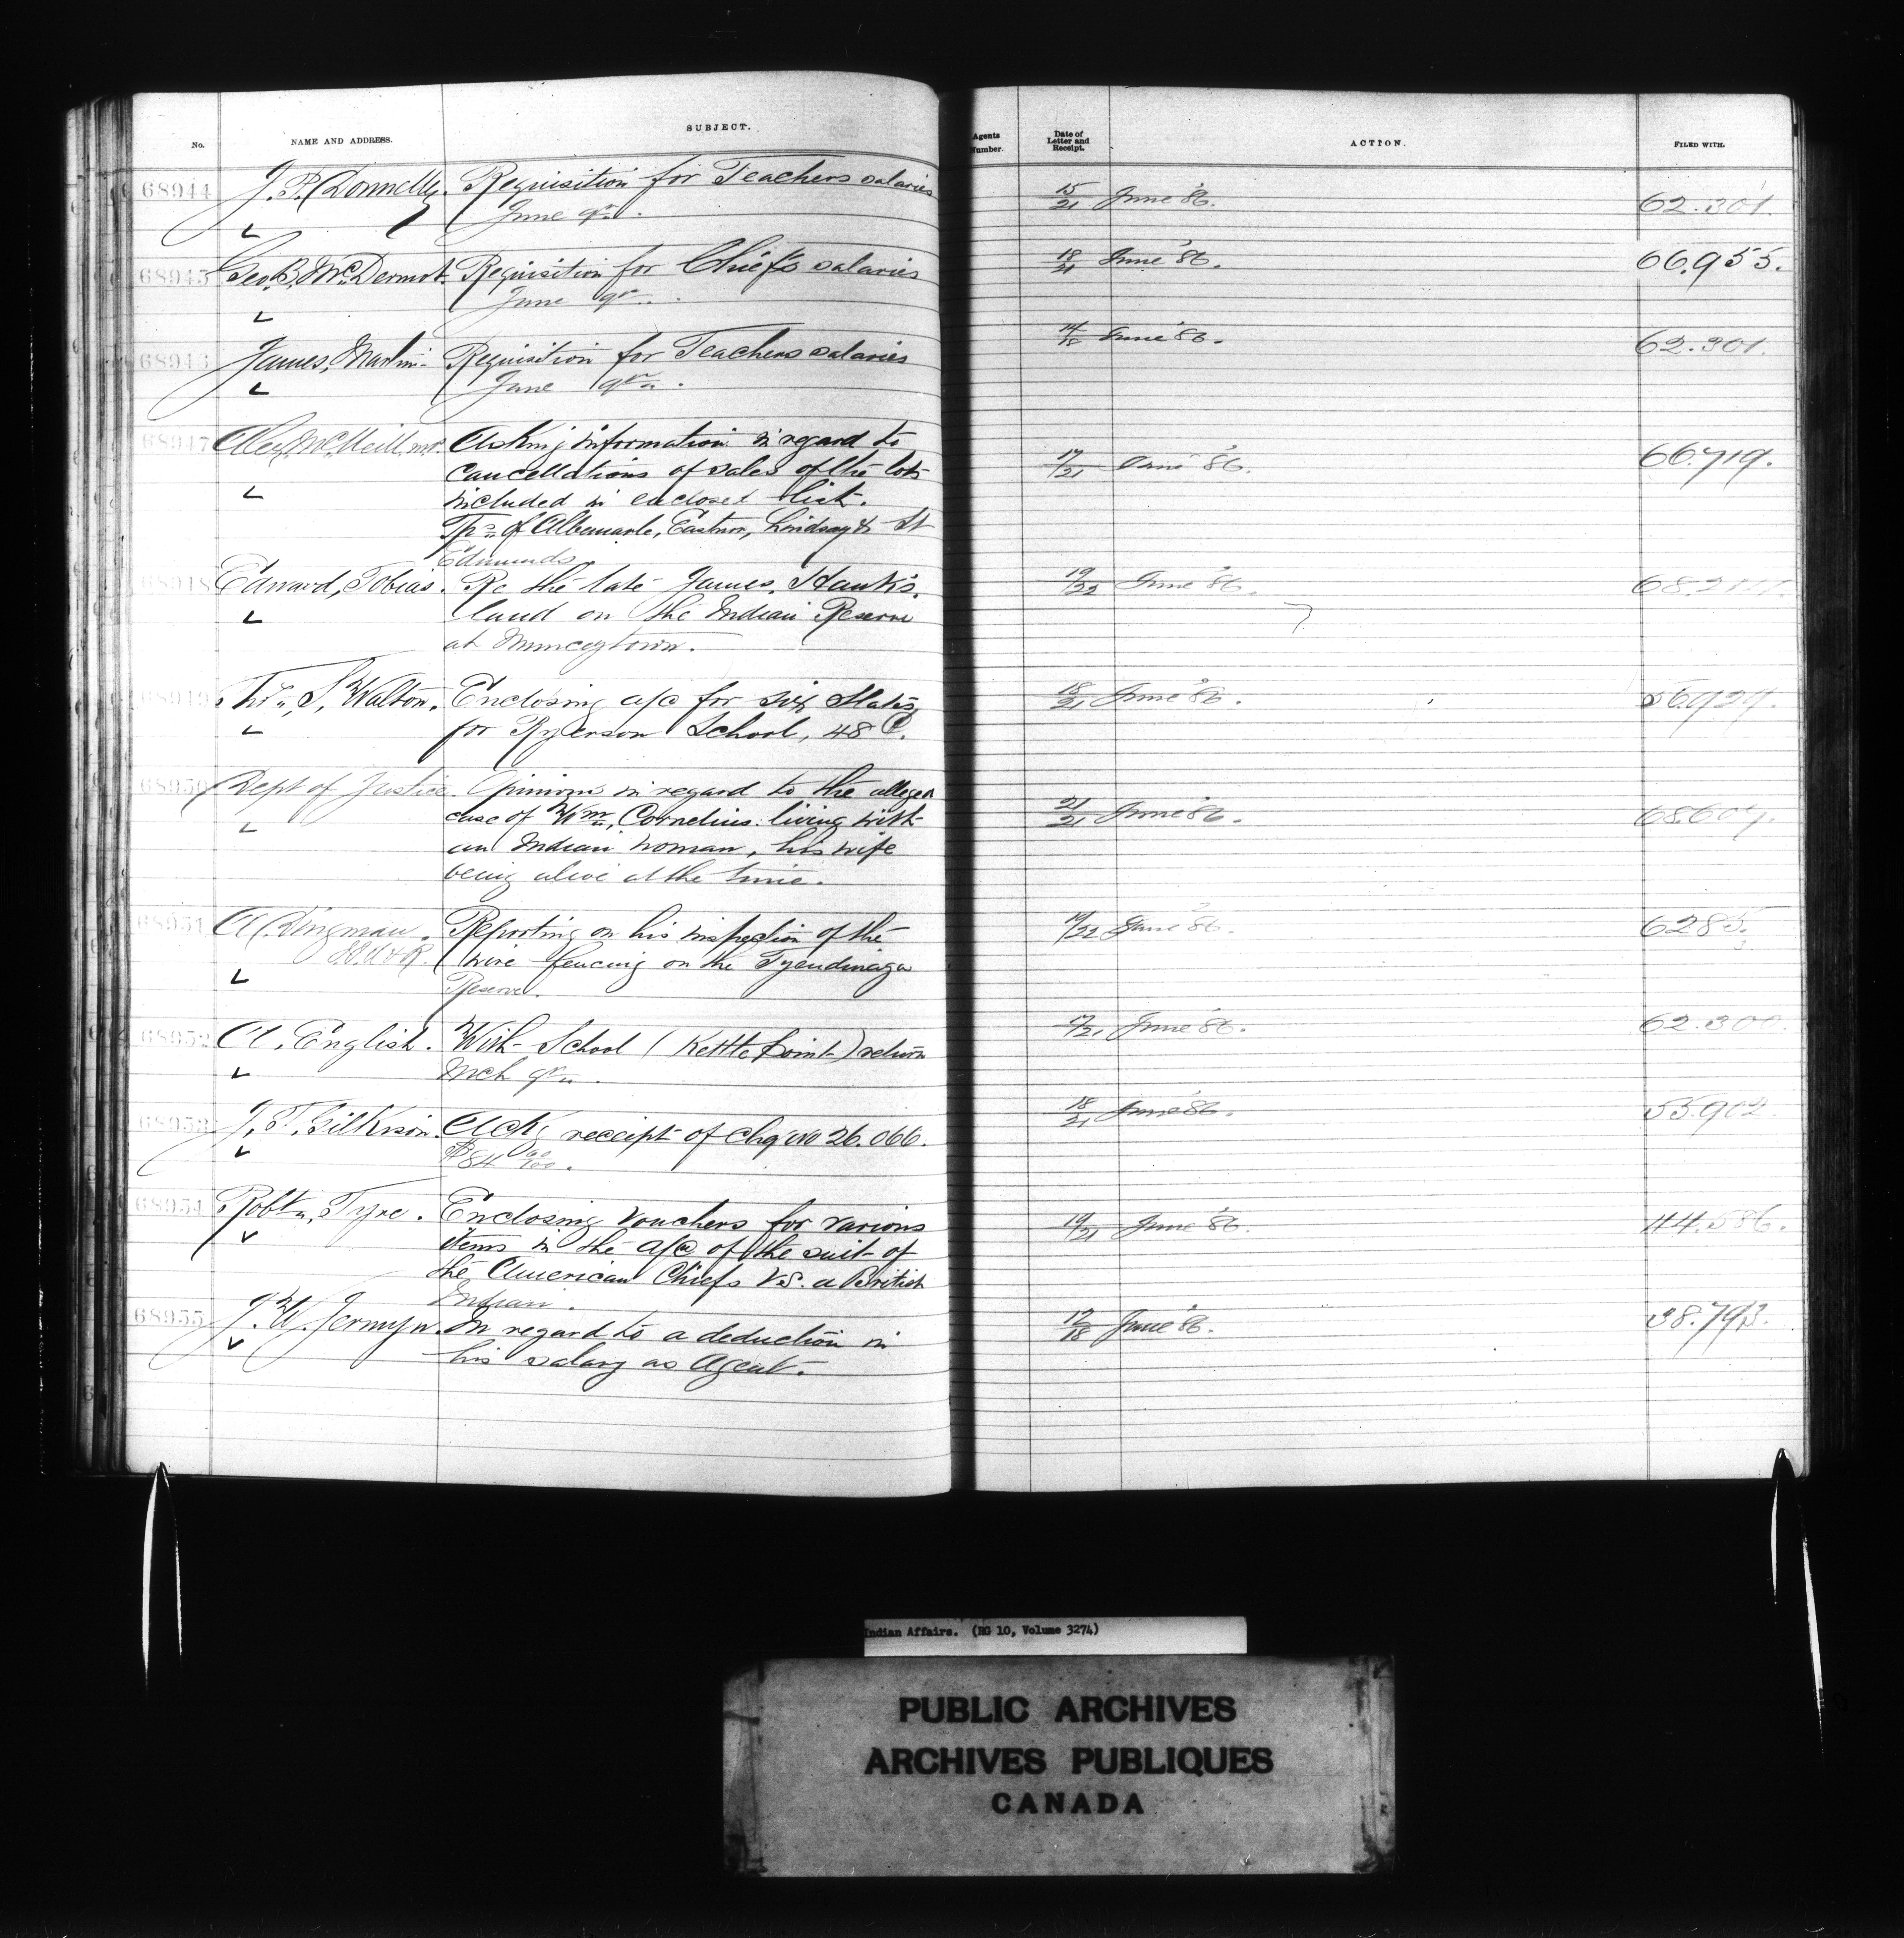 No. NAME AND ADDRESS. SUBJECT. Agents Number. Date of Letter and Receipt. ACTION. FILED WITH.
68944 J. P. Donnelly. Requisition for Teachers salaries 15/21 June '86. 62.301.
June qr.
68945 Geo. B. McDermot. Requisition for Chief's salaries 18/21 June '86. 66.955.
June qr.
68946 James, Martin. Requisition for Teachers salaries June '86. 62.301.
June qr.
68947 Alex. McNeill, m.p. Asking information in regard to
cancellations of sales of the lots 17/21 June '86. 66.719.
included in enclosed list.
Tps of Albemarle, Eastnor, Lindsay & St
Edmunds.
68948 Edward, Tobias. Re the late James, Hank's. 19/22 June '86.
land on the Indian Reserve
at Munceytown.
68949 Thos. S. Walton. Enclosing a/c for six Slates 18/21 June '86. 56929.
for Ryerson School, 48 ¢.
68950 Dept of Justice. Opinion in regard to the alleged
case of Wm. Cornelius living with 21/21 June '86. 68607.
an Indian woman, his wife
being alive at the time.
68951 A. Dingman. Reporting on his inspection of the June '86. 6285.
wire fencing on the Tyendinaga
Reserve.
68952 A. English. With School (Kettle Point) return June '86. 62.300.
Mch qr.
68953 J. T. Gilkison. Ackg receipt of chq No 26.066. 18/21 June '86. 55.902
$84 00/100.
68954 Robt. Tyre. Enclosing vouchers for various 19/21 June '86. 44.586.
items in the a/c of the suit of
the American Chiefs vs. a British
Indian.
68955 J. W. Jermyn. In regard to a deduction in 12/18 June '86. 38.793.
his salary as Agent.
Indian Affairs. (RG 10, Volume 3274)
PUBLIC ARCHIVES
ARCHIVES PUBLIQUES
CANADA